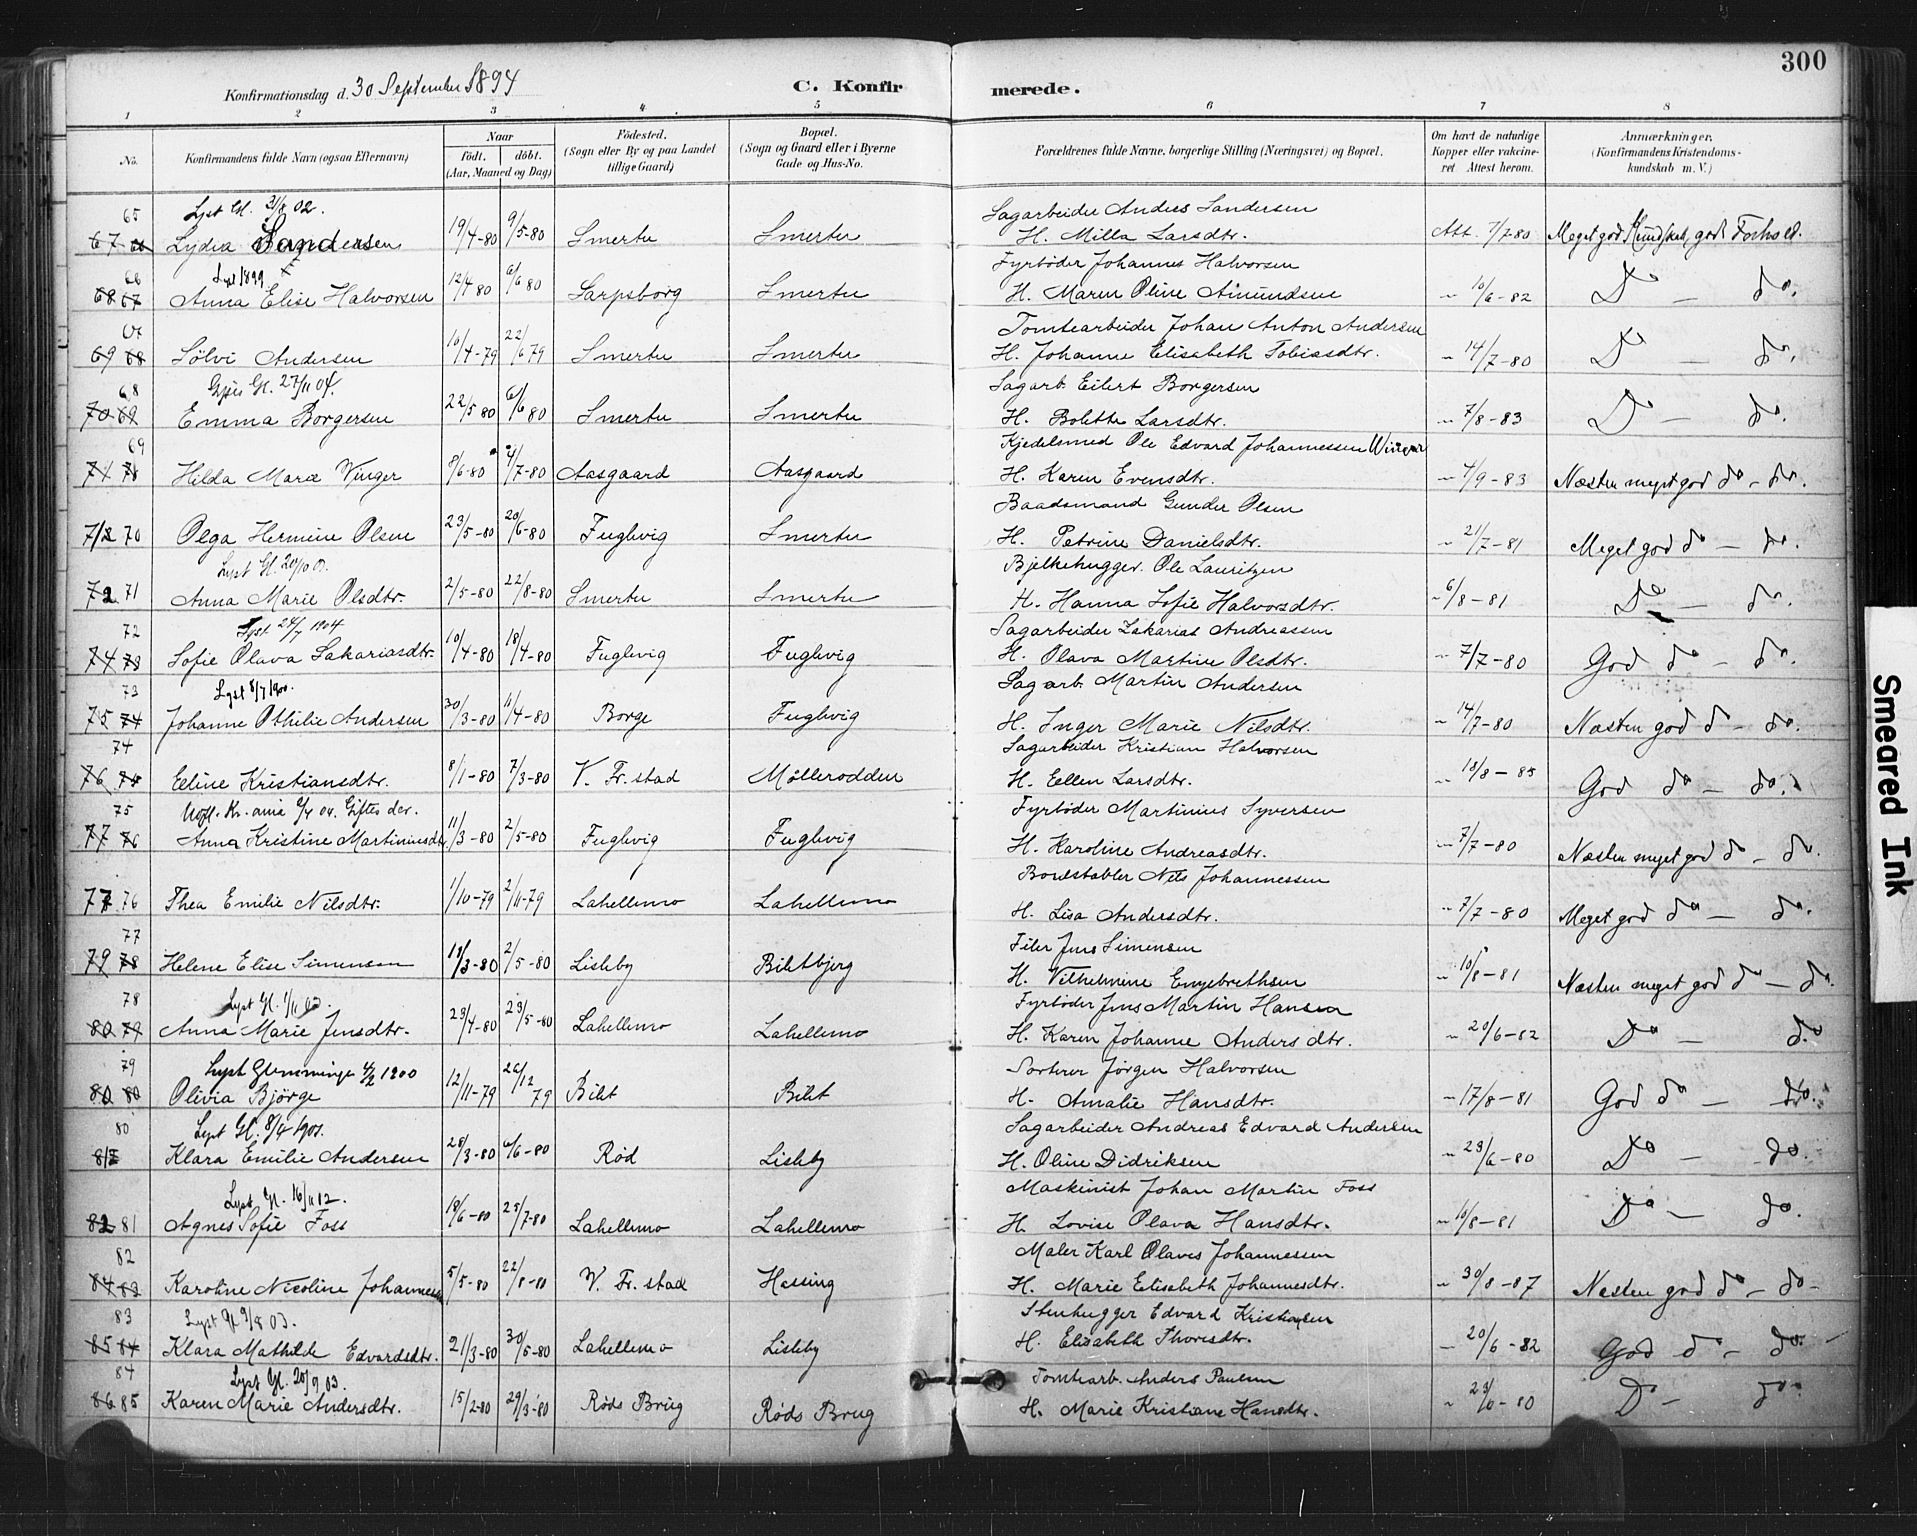 300
Konfirmationsdag d. 30 September 1894
C. Konfirmerede.
1 2 3 4 5 6 7 8
No. Konfirmandens fulde Navn (ogsaa Efternavn) Naar födt. döbt. (Aar, Maaned og Dag) Födested. (Sogn eller By og paa Landet tillige Gaard) Bopæl. (Sogn og Gaard eller i Byerne Gade og Hus-No. Forældrenes fulde Navne, borgerlige Stilling (Næringsvei) og Bopæl. Om havt de naturlige Kopper eller vakcineret. Attest herom. Anmærkninger. (Konfirmandens Kristendomskundskab m. V.)
65 Lyst Gl. 31/8 02. Sagarbeider Anders Sandersen
67 Lydia Sandersen 19/4-80 9/5-80 Smertu Smertu H. Milla Larsdtr. Att. 7/7 80 Meget god Kundskab, godt Forhold.
66 Lyst 1899 Fyrbøder Johannes Halvorsen
68 67 Anna Elise Halvorsen 12/4 80 6/6 80 Sarpsborg Smertu H. Maren Oline Amundsen " 10/6-82 Do — do.
67 Tomtearbeider Johan Anton Andersen
69 68 Sölvi Andersen 16/4-79 22/6 79 Smertu Smertu H. Johanne Elisabeth Tobiasdtr. " 14/7-80 Do — do.
68 Gl. 27/11 04. Sagarb. Eilert Borgersen
70 69 Emma Borgersen 22/5 80 6/6 80 Smertu Smertu H. Bolette Larsdtr. " 7/8-83 Do — do.
69 Kjedelsmed Ole Edvard Johannessen Winger
71 Hilda Marie Winger 8/6-80 4/7-80 Aasgaard Aasgaard H. Karen Evensdtr. " 4/9-83 Næsten meget god do - do.
Baadsmand Gunder Olsen
70 Olga Hermine Olsen 23/5-80 20/6-80 Fuglevig Smertu H. Petrine Danielsdtr. " 21/7-81 Meget god do — do.
Lyst Gl. 20/10 01. Bjelkehugger Ole Lauritzen
72 71 Anna Marie Olsdtr. 2/5-80 22/8-80 Smertu Smertu H. Hanna Sofie Halvorsdtr. " 6/8-81 Do — do.
72 Lyst 24/7 1904 Sagarbeider Zakarias Andreassen
74 73 Sofie Olava Sakariasdtr. 10/4-80 18/4-80 Fuglevig Fuglevig H. Olava Martine Olsdtr. " 7/7-80 God do — do.
73 Lyst 8/7 1900. Sagarb. Martin Andersen
75 74 Johanne Othilie Andersen 30/3-80 11/4-80 Borge Fuglevig H. Inger Marie Nilsdtr. " 14/7-80 Næsten god do - do.
74 Sagarbeider Kristian Halvorsen
76 Eline Kristiansdtr. 8/1-80 7/3-80 V. Fr.stad Möllerodden H. Ellen Larsdtr. " 18/8-85 God do — do.
75 Kr.ania 6/4 04. Giftes der. Fyrbøder Martinius Syversen
77 76 Anna Kristine Martiniusdtr. 11/3-80 2/5-80 Fuglevig Fuglevig H. Karoline Andreasdtr. " 7/7-80 Næsten meget god do - do.
Bordstabler Nils Johannessen
77 76 Thea Emilie Nilsdtr. 1/10-79 2/11-79 Lahellemo Lahellemo H. Lisa Andersdtr. " 7/7-80 Meget god do — do.
77 Filer Jens Simensen
79 78 Helene Elise Simensen 18/3-80 2/5-80 Lisleby Biletbjerg H. Vilhelmine Engebrethsen " 10/8-81 Næsten meget god do — do.
78 Lyst Gl. 1/11 03. Fyrbøder Jens Martin Hansen
80 79 Anna Marie Jensdtr. 23/4-80 23/5-80 Lahellemo Lahellemo H. Karen Johanne Andersdtr. " 20/6-82 Do — do.
79 Lyst Glemminge 4/2 1900 Sorterer Jørgen Halvorsen
80 80 Olivia Bjørge 12/11-79 26/12 79 Bilet Bilet H. Amalie Hansdtr. " 17/8-81 God do — do.
80 Lyst Gl. 8/4 1901. Sagarbeider Andreas Edvard Andersen
Klara Emilie Andersen 28/3-80 6/6-80 Rød Lisleby H. Oline Didriksen " 23/6-80 Do — do.
Lyst Gl. 16/11 12. Maskinist Johan Martin Foss
82 81 Agnes Sofie Foss 18/6-80 25/7-80 Lahellemo Lahellemo H. Lovise Olava Hansdtr. " 10/8-81 Do — do.
82 Maler Karl Olaves Johannessen
84 83 Karoline Nicoline Johannessen 5/5-80 22/8-80 V. Fr.stad Hessing H. Marie Elisabeth Johannesdtr. " 30/8-87 Næsten god do - do-
83 Lyst Gl 9/8 03. Stenhugger Edvard Kristiansen
85 84 Klara Mathilde Edvardsdtr. 21/3-80 30/5-80 Lahellemo Lisleby H. Elisabeth Thoresdtr. " 20/6-82 God do - do.
84 Lyst Gl. 20/9 03. Tomtearb. Anders Paulsen
86 85 Karen Marie Andersdtr. 15/2-80 29/3-80 Røds Brug Røds Brug H. Marie Kristiane Hansdtr. " 23/6-80 Do - do.
Smeared Ink